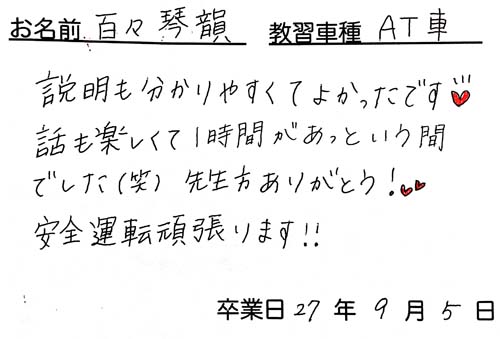 お名前 百々琴韻 教習車種 AT車
説明も分かりやすくてよかったです
話も楽しくて1時間があっという間
でした(笑) 先生方ありがとう!
安全運転頑張ります!!
卒業日 27 年 9 月 5 日